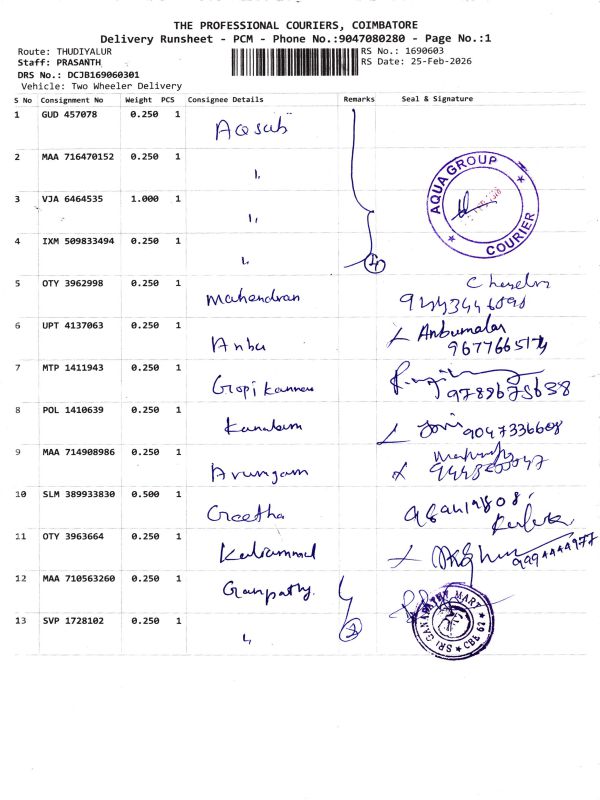 THE PROFESSIONAL COURIERS, COIMBATORE
Delivery Runsheet - PCM - Phone No.:9047080280 - Page No.:1
Route: THUDIYALUR RS No.: 1690603
Staff: PRASANTH RS Date: 25-Feb-2026
DRS No.: DCJB169060301
Vehicle: Two Wheeler Delivery
S No Consignment No Weight PCS Consignee Details Remarks Seal & Signature
1 GUD 457078 0.250 1
2 MAA 716470152 0.250 1 "
AQUA GROUP
COURIER
3 VJA 6464535 1.000 1 "
4 IXM 509833494 0.250 1 " 4
5 OTY 3962998 0.250 1 Mahendran
6 UPT 4137063 0.250 1 Anbu Anbumalar
9677665174
7 MTP 1411943 0.250 1 Gopi kannan
9789675638
8 POL 1410639 0.250 1 9047336608
9 MAA 714908986 0.250 1 Arungam
10 SLM 389933830 0.500 1 Geetha
11 OTY 3963664 0.250 1 9994444977
12 MAA 710563260 0.250 1 Ganpathy.
SRI GANAPATHY MART
CBE 62
13 SVP 1728102 0.250 1 " 2